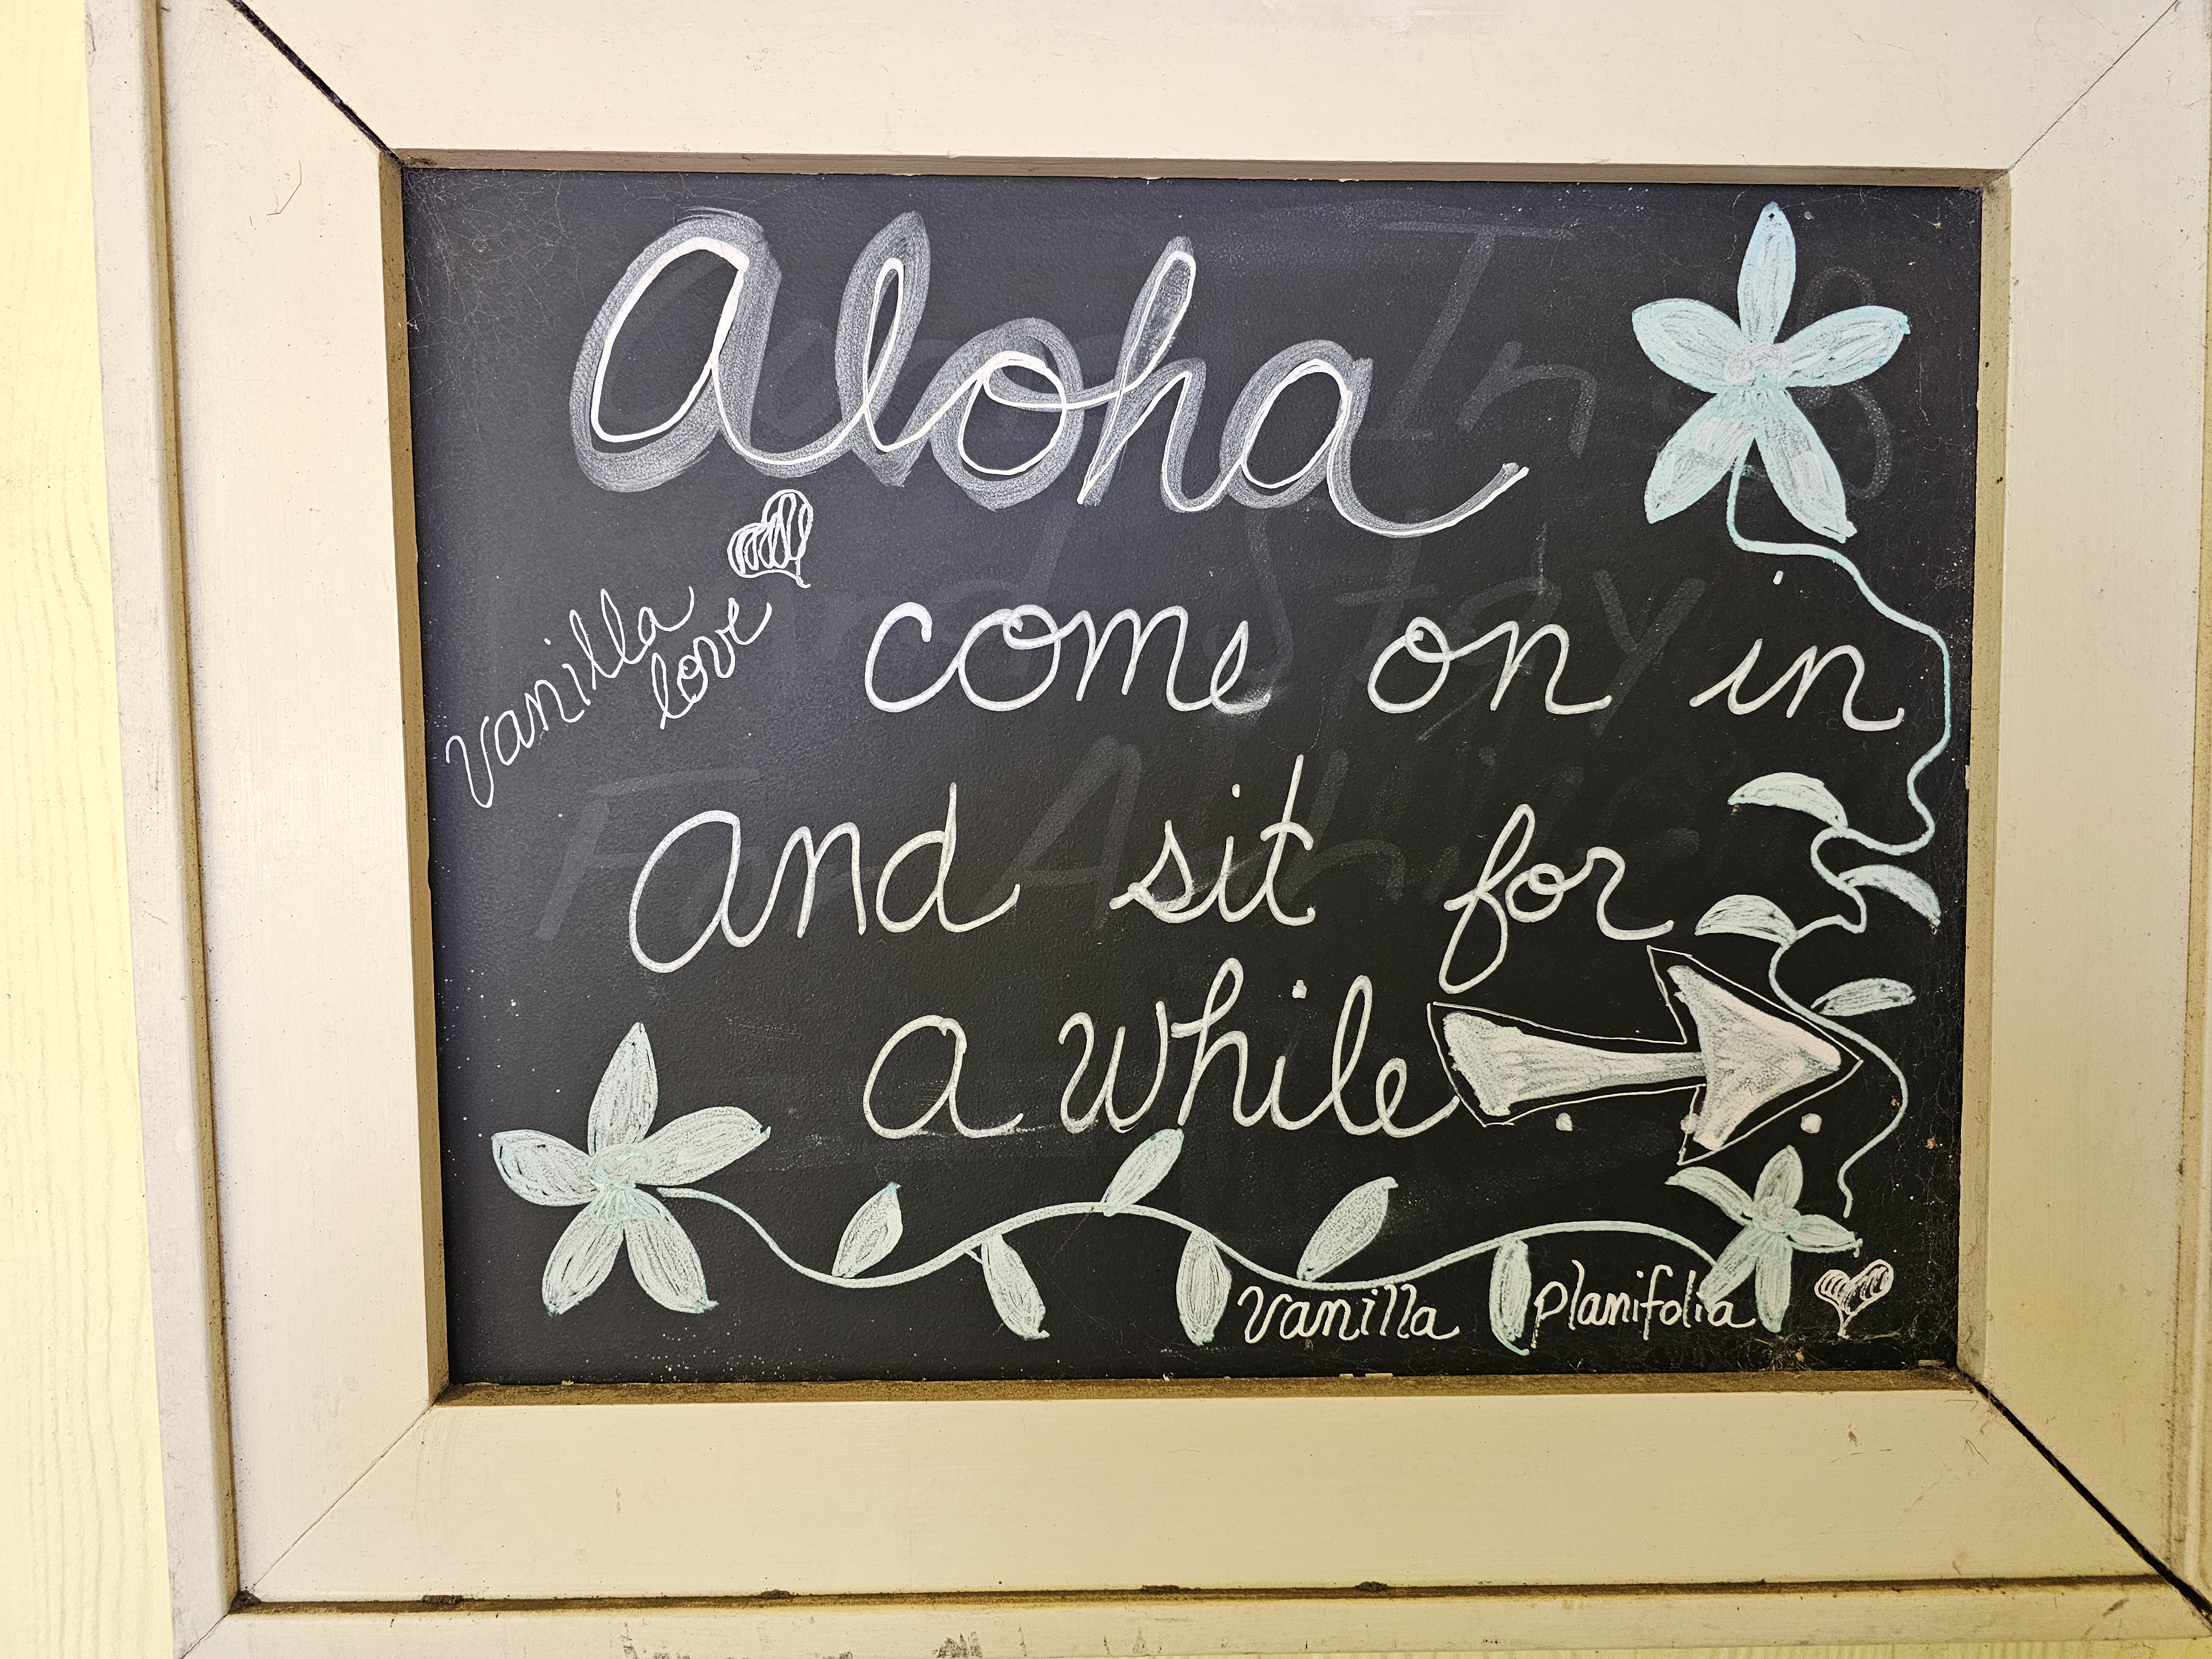 Aloha
vanilla
love
come on in
and sit for
a while...
vanilla planifolia